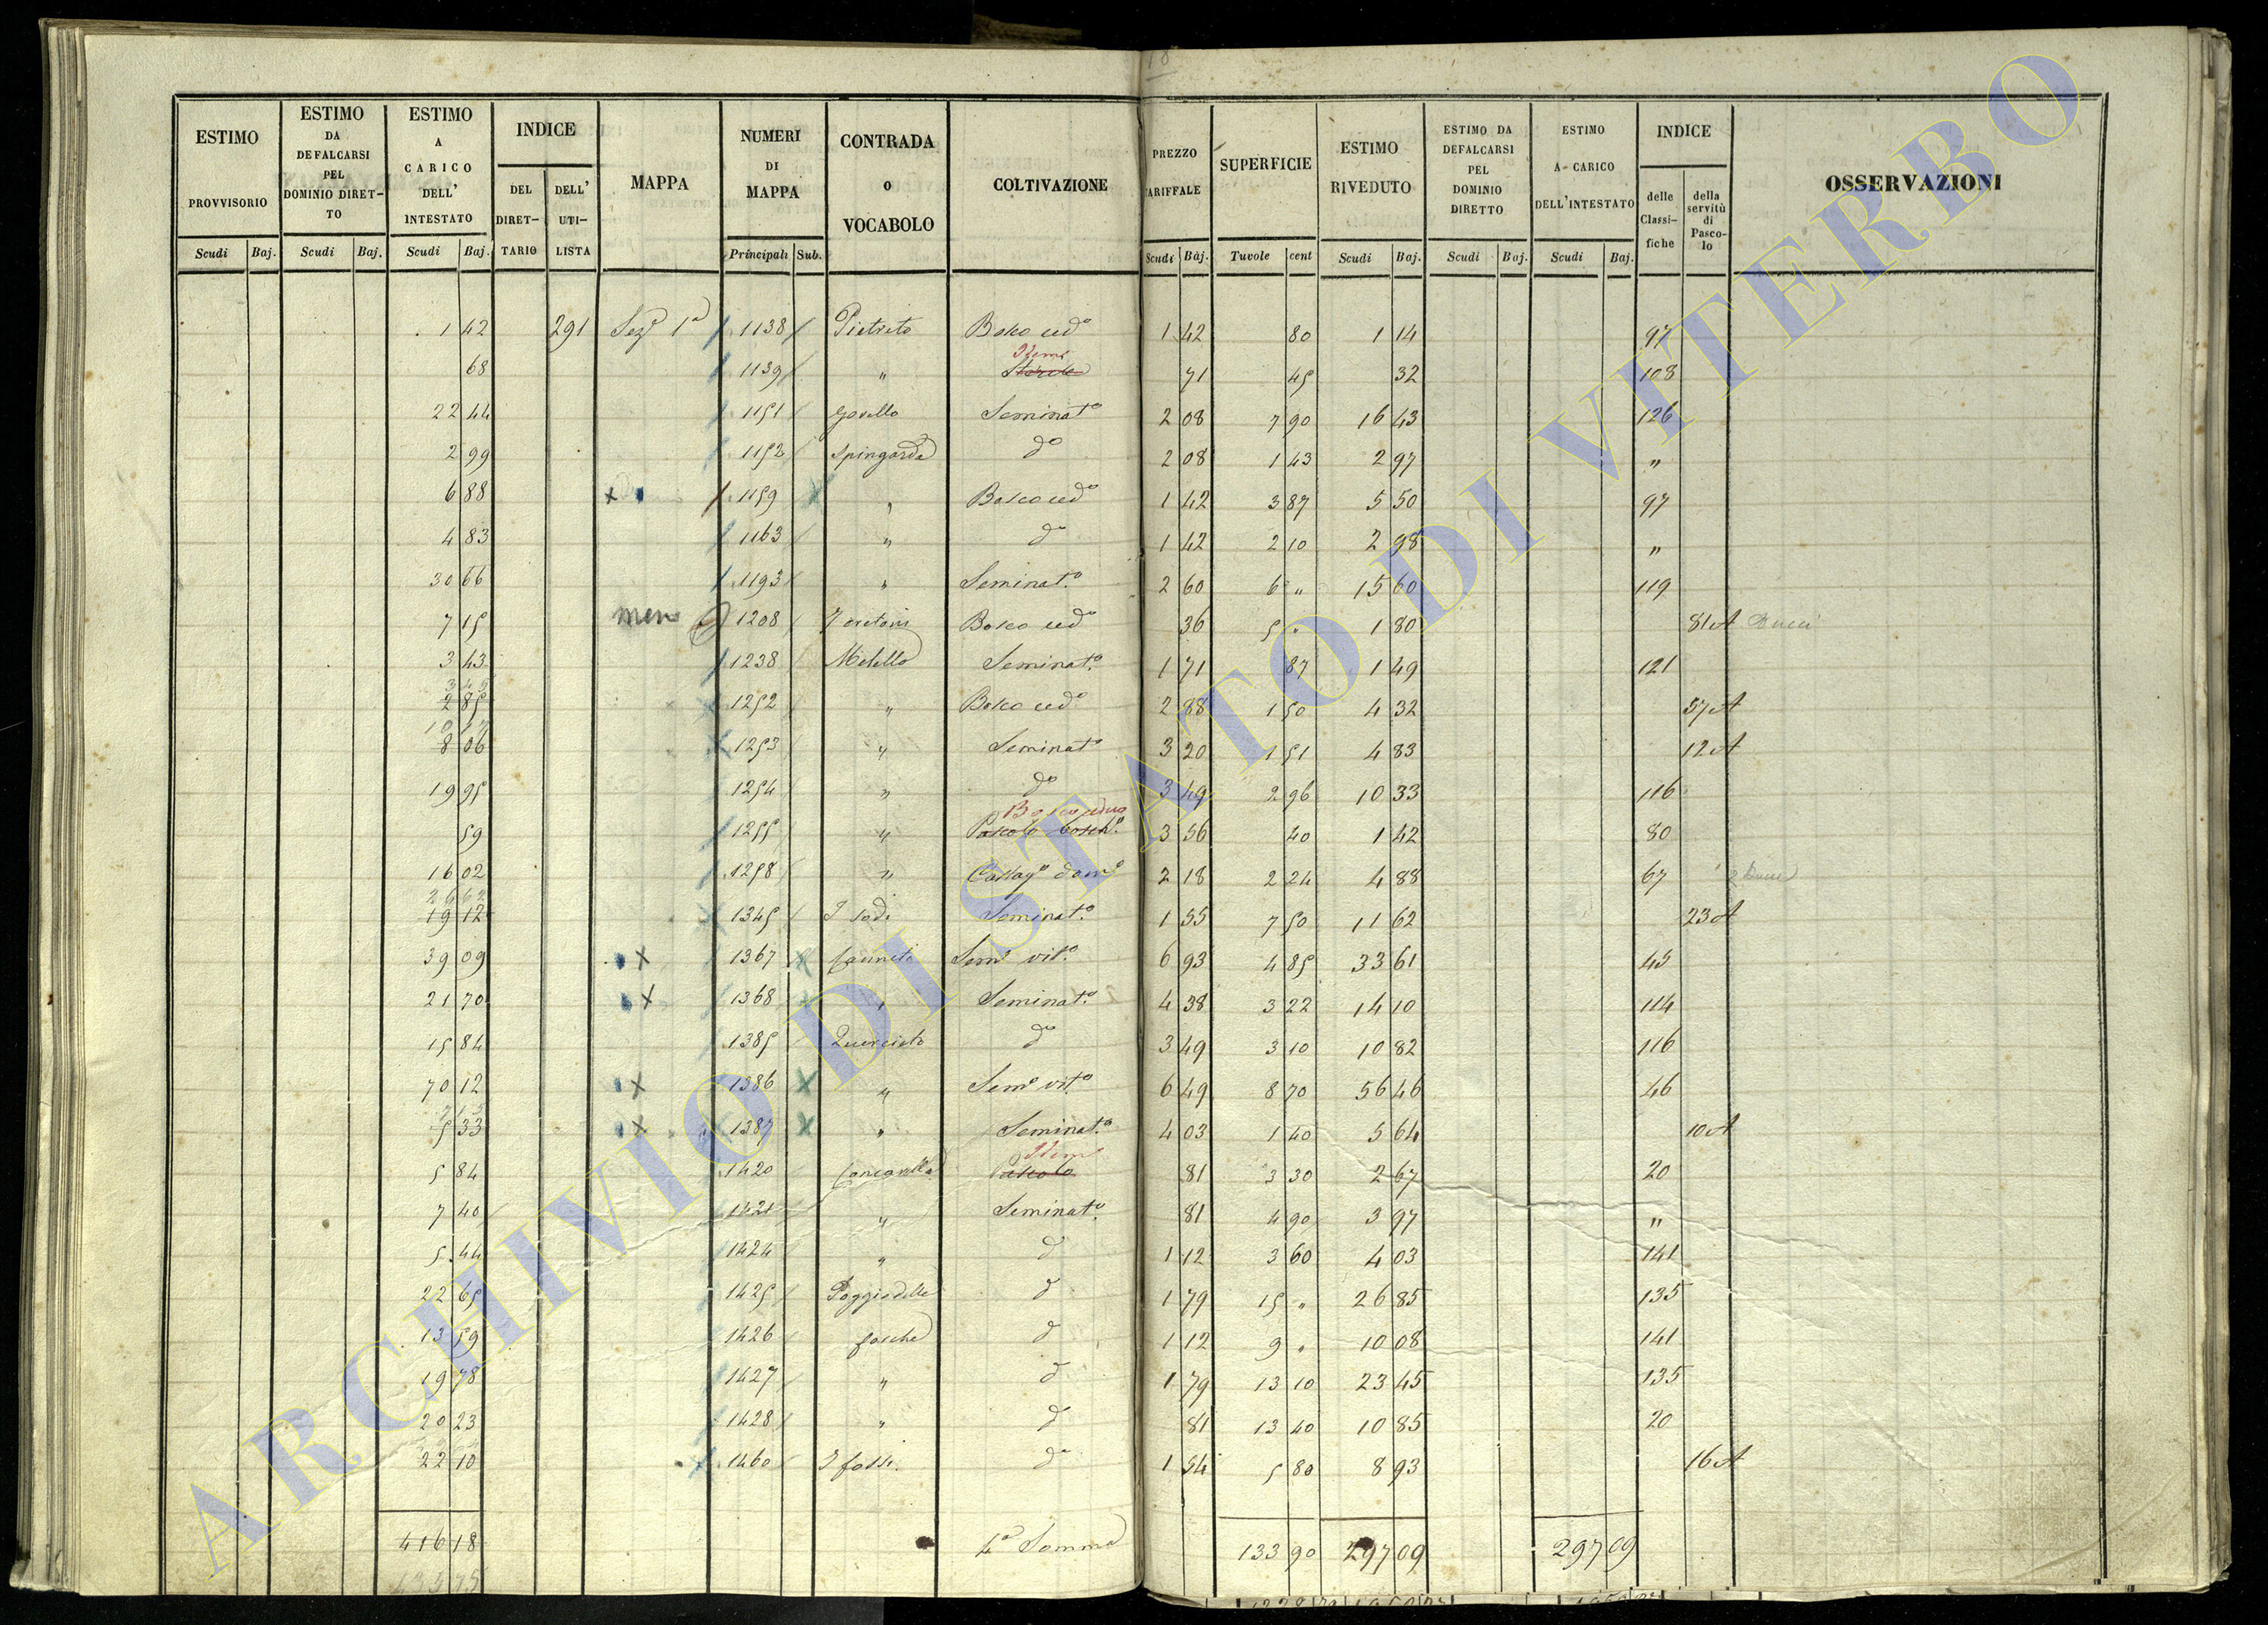 18
ESTIMO PROVVISORIO | ESTIMO DA DEFALCARSI PEL DOMINIO DIRETTO | ESTIMO A CARICO DELL' INTESTATO | INDICE DEL DIRETTARIO | DELL' UTILISTA | MAPPA | NUMERI DI MAPPA | CONTRADA O VOCABOLO | COLTIVAZIONE | PREZZO TARIFFALE | SUPERFICIE | ESTIMO RIVEDUTO | ESTIMO DA DEFALCARSI PEL DOMINIO DIRETTO | ESTIMO A CARICO DELL'INTESTATO | INDICE delle Classifiche | della servitù di Pascolo | OSSERVAZIONI
Scudi Baj. | Scudi Baj. | Scudi Baj. | Principali Sub. | Scudi Baj. | Tavole cent | Scudi Baj. | Scudi Baj. | Scudi Baj.
1 42 291 Sezᵉ 1ª 1138 Pietreto Bosco cedº 1 42 80 1 14 97
68 1139 " Idem 71 45 32 108
22 44 1151 Govello Seminatº 2 08 7 90 16 43 126
2 99 1152 Spingarda dº 2 08 1 43 2 97 "
6 88 x 1159 x " Bosco cedº 1 42 3 87 5 50 97
4 83 1163 " dº 1 42 2 10 2 98 "
30 66 1193 " Seminatº 2 60 6 " 15 60 119
7 15 1208 Bosco cedº 36 5 " 1 80 81A
3 43 1238 Melello Seminatº 1 71 87 1 49 121
2 85 1252 " Bosco cedº 2 88 1 50 4 32 57A
8 06 x 1253 " Seminatº 3 20 1 51 4 83 12A
19 95 1254 " dº 3 49 2 96 10 33 116
59 1255 " Bosco ceduo Pascolo boschº 3 56 40 1 42 80
16 02 1258 " Castagº domº 2 18 2 24 4 88 67
19 12 x 1345 I sodi Seminatº 1 55 7 50 11 62 23A
39 09 x 1367 x Semº vitº 6 93 4 85 33 61 45
21 70 x 1368 x " Seminatº 4 38 3 22 14 10 114
15 84 1385 Querceto dº 3 49 3 10 10 82 116
70 12 x 1386 x " Semº vitº 6 49 8 70 56 46 46
5 33 x 1387 x " Seminatº 4 03 1 40 5 64 10A
5 84 1420 Idem Pascolo 81 3 30 2 67 20
7 40 1421 " Seminatº 81 4 90 3 97 "
5 44 1424 " dº 1 12 3 60 4 03 141
22 65 1425 Poggio delle dº 1 79 15 " 26 85 135
13 59 1426 fosche dº 1 12 9 " 10 08 141
19 78 1427 " dº 1 79 13 10 23 45 135
20 23 1428 " dº 81 13 40 10 85 20
22 10 1460 I fossi dº 1 54 5 80 8 93 16A
416 18 4ª Somma 133 90 297 09 297 09
ARCHIVIO DI STATO DI VITERBO